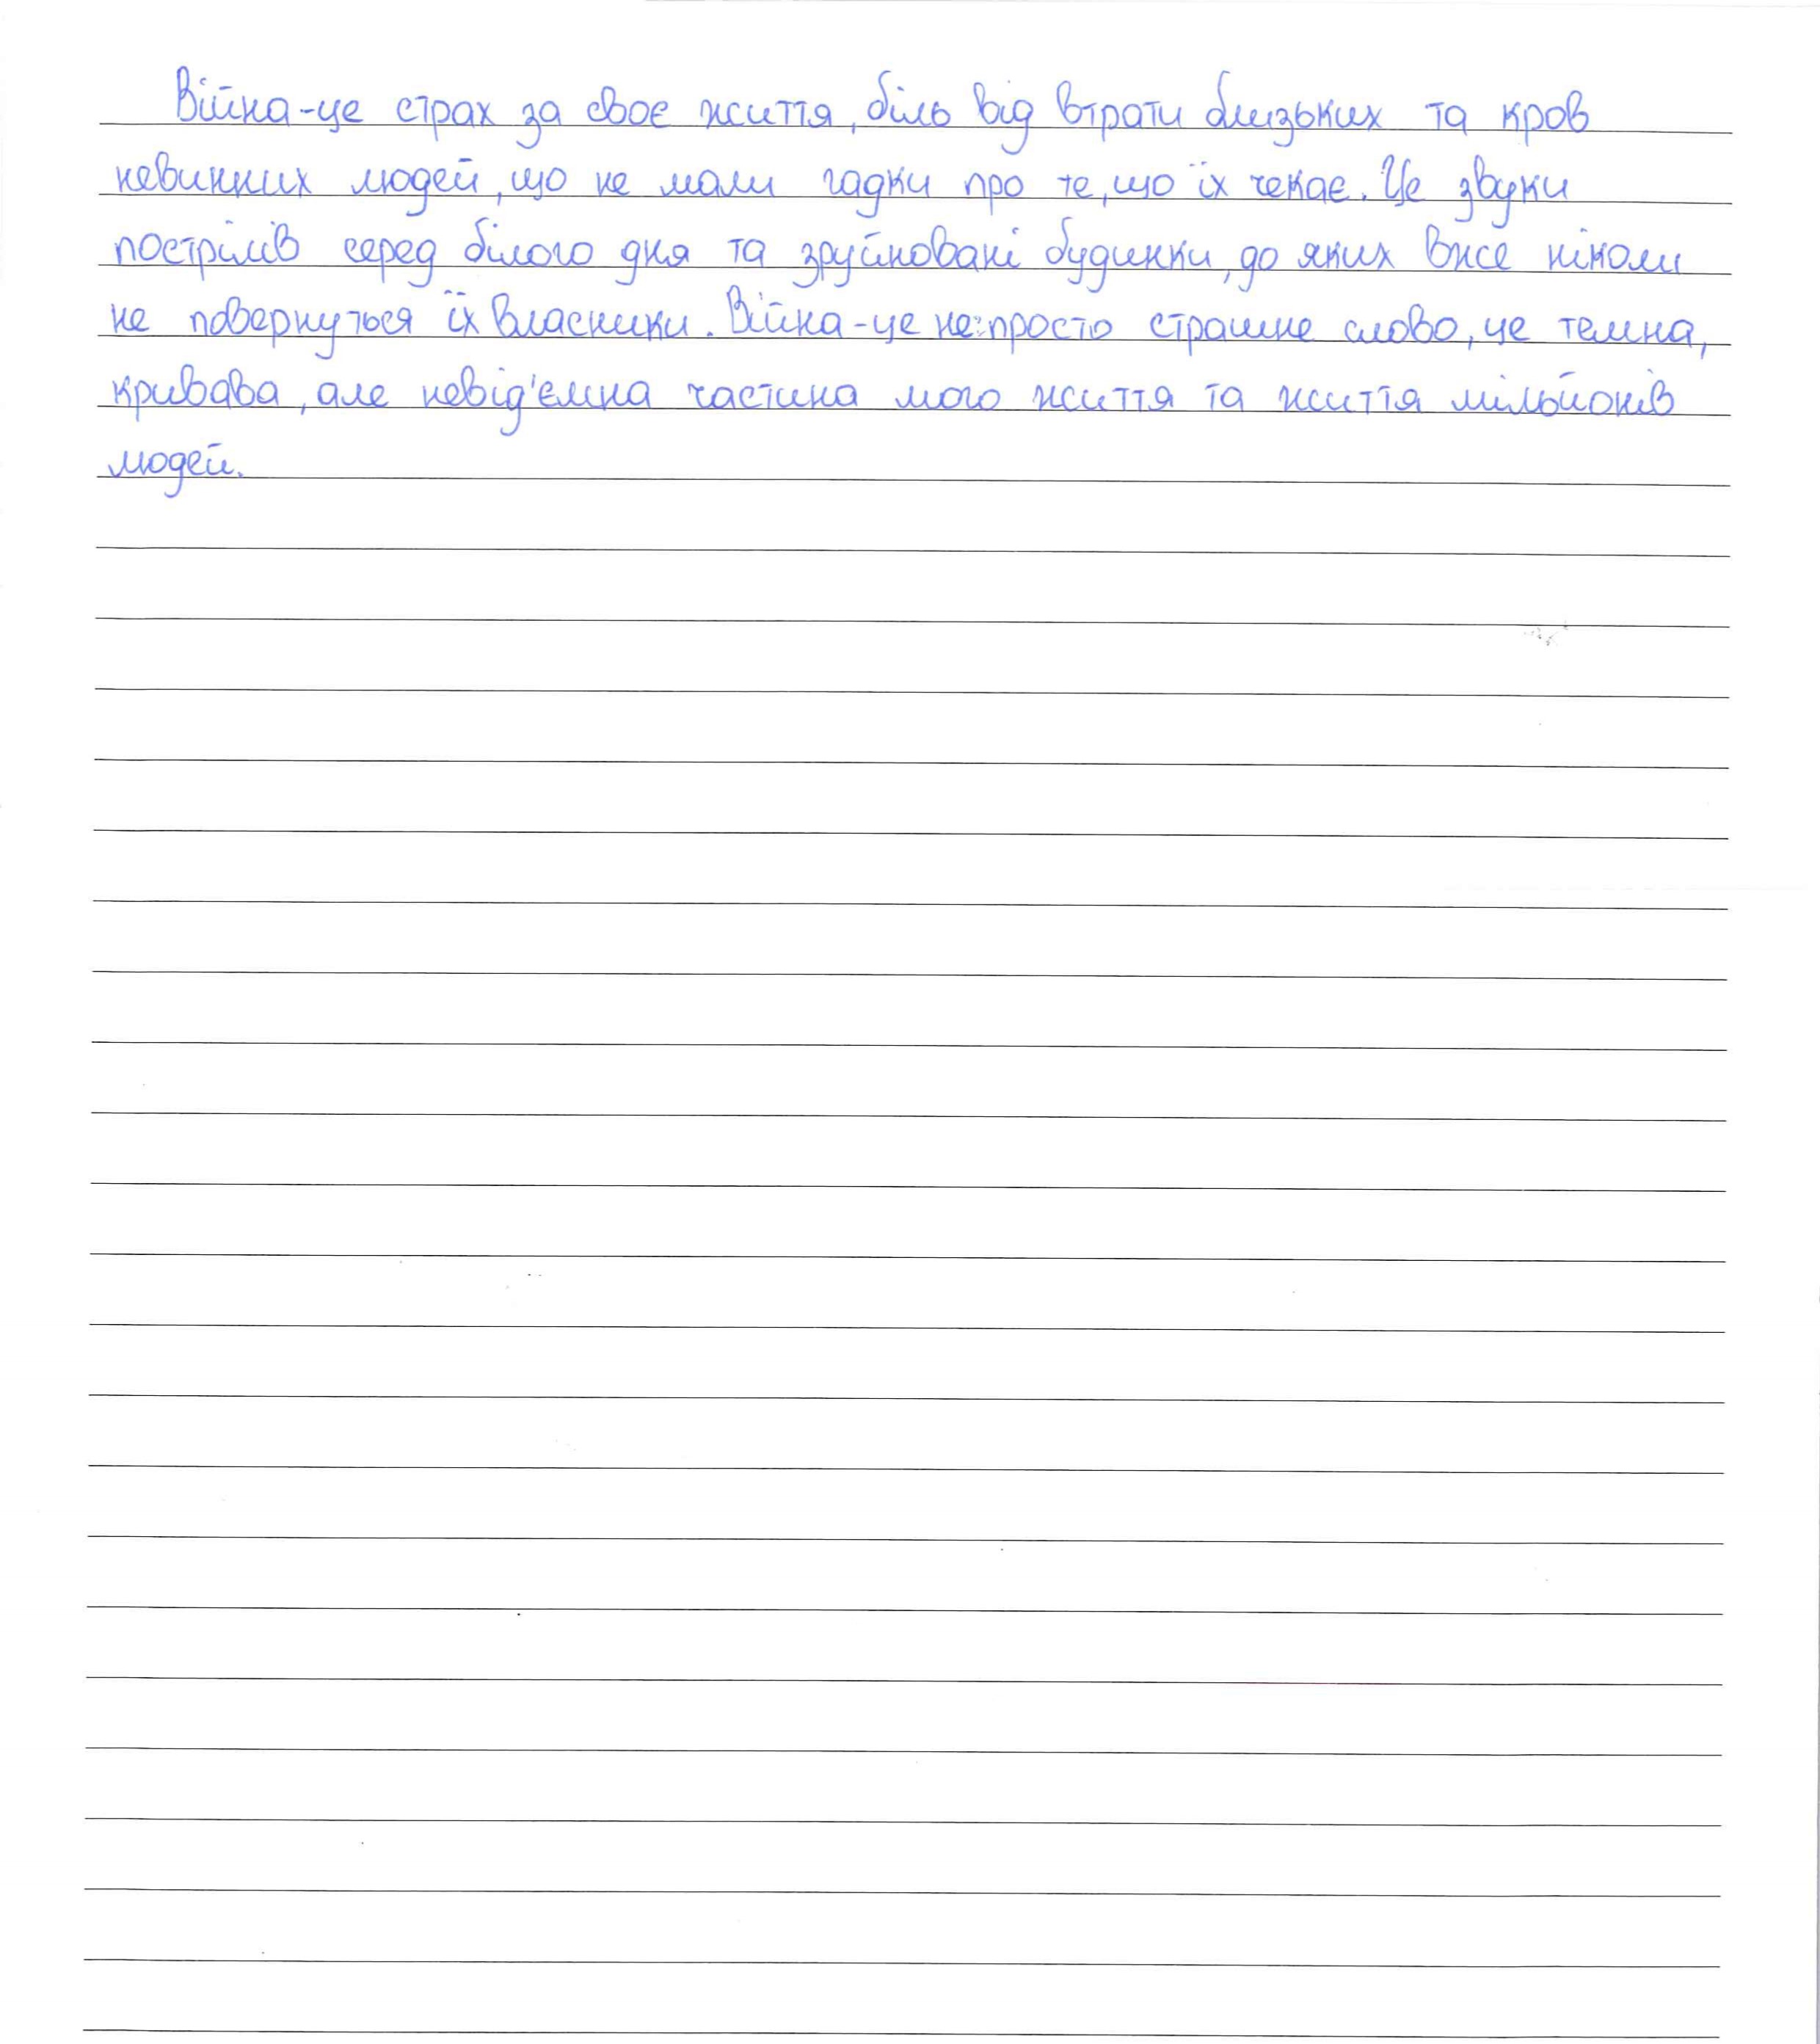 Війна-це страх за своє життя, біль від втрати близьких та кров
невинних людей, що не мали гадки про те, що їх чекає. Це звуки
пострілів серед білого дня та зруйновані будинки, до яких вже ніколи
не повернуться їх власники. Війна-це не просто страшне слово, це темна,
кривава, але невід'ємна частина мого життя та життя мільйонів
людей.